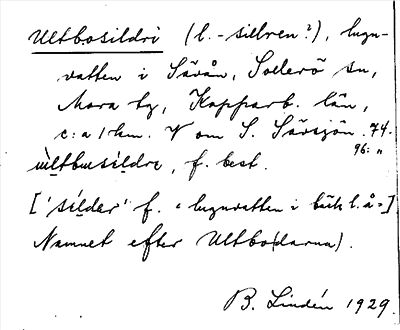 Ultbosildri (l. -sillren?), lugn-
vatten i Säxån, Sollerö sn,
Mora tg, Kopparb. län,
c:a 1 km. V om S. Särsjön. 74.
96: "
ùltbusíldre, f. best.
['sílder' f. "lugnvatten i bäck l. å"]
Namnet efter Ultbo(darna).
B. Lindén 1929.